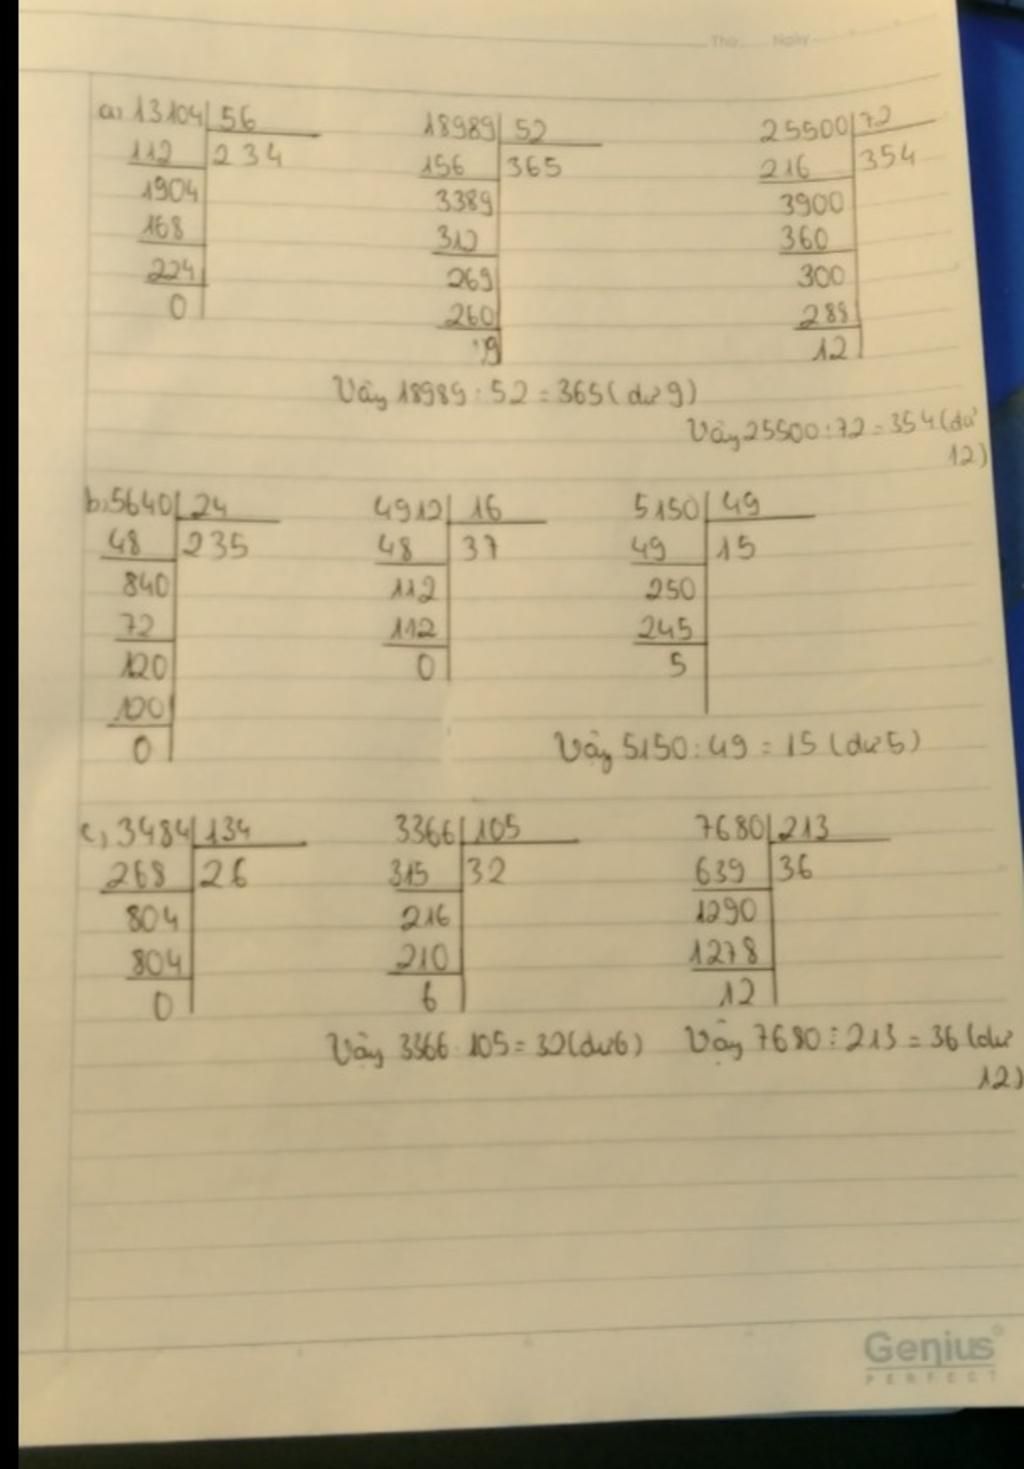 Thứ Ngày
a, 13104 56 18989 52 25500 72
112 234 156 365 216 354
1904 3389 3900
168 312 360
224 269 300
0 260 288
9 12
Vậy 18989 : 52 = 365 (dư 9)
Vậy 25500 : 72 = 354 (dư
12)
b, 5640 24 4912 16 5150 49
48 235 48 37 49 15
840 112 250
72 112 245
120 0 5
120
0 Vậy 5150 : 49 = 15 (dư 5)
c, 3484 134 3366 105 7680 213
268 26 315 32 639 36
804 216 1290
804 210 1278
0 6 12
Vậy 3366 : 105 = 32 (dư 6) Vậy 7680 : 213 = 36 (dư
12)
Genius
PERFECT